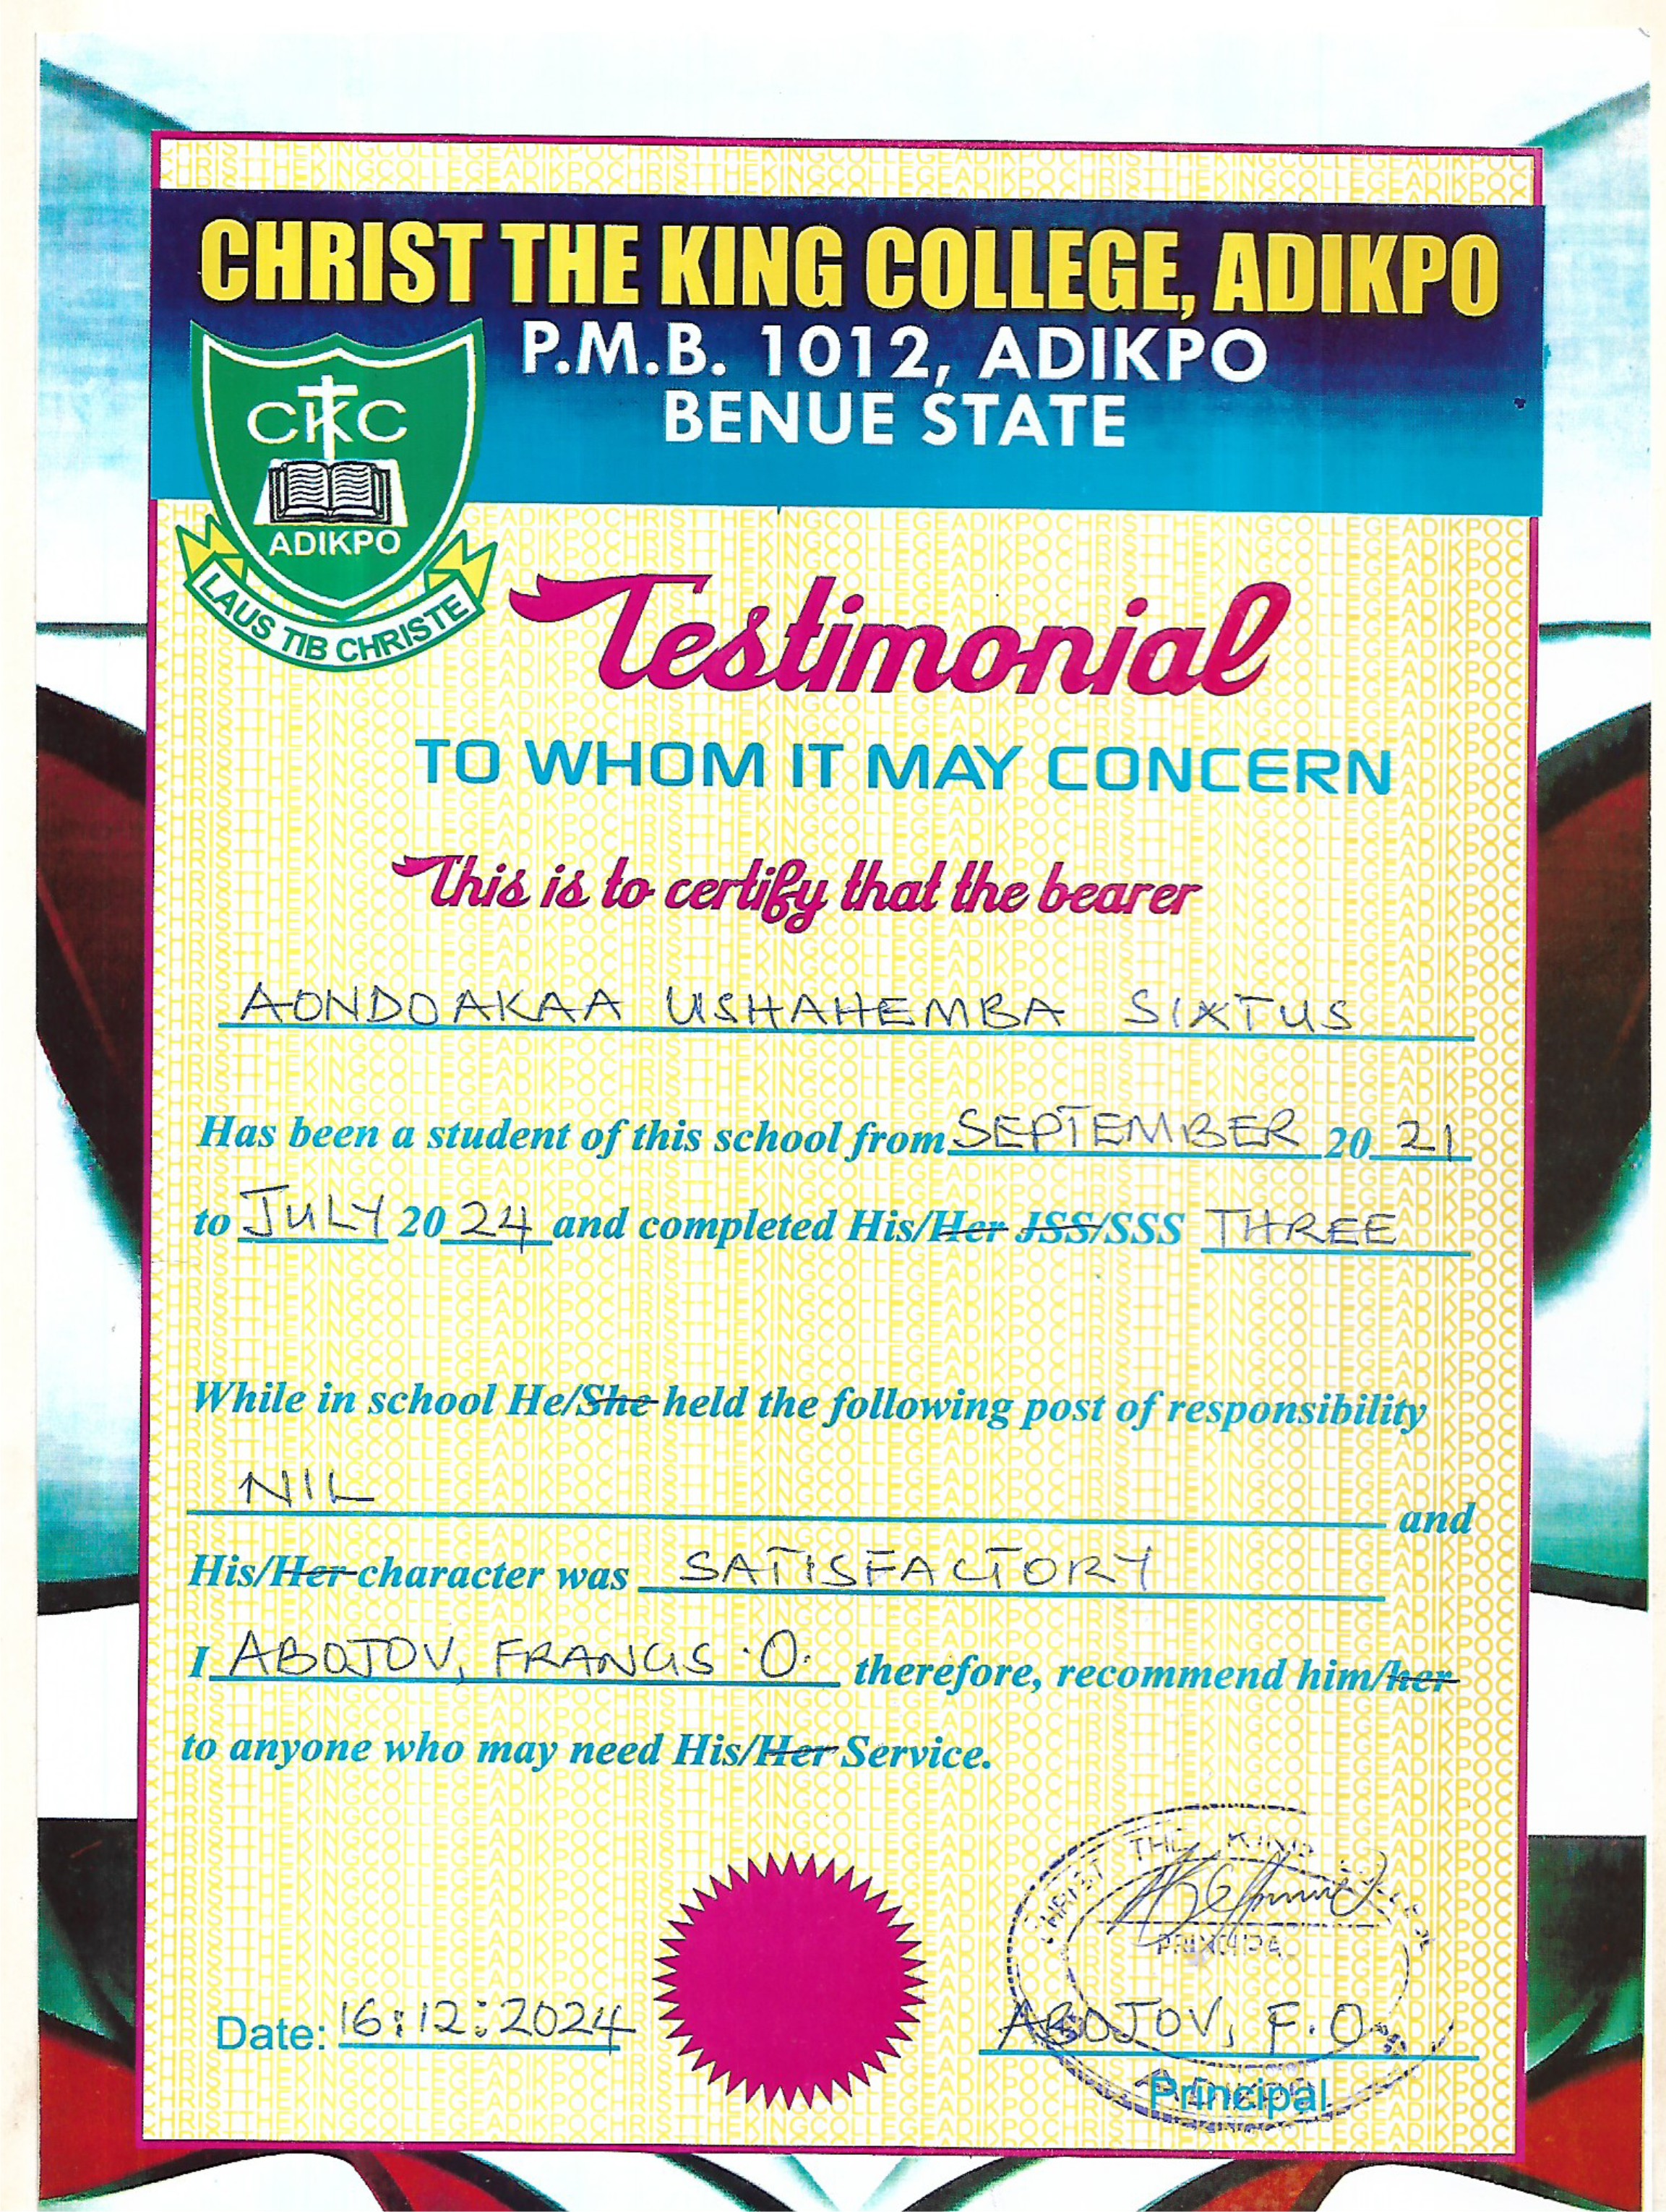 CHRIST THE KING COLLEGE, ADIKPO
P.M.B. 1012, ADIKPO
BENUE STATE
CKC
ADIKPO
LAUS TIB CHRISTE
Testimonial
TO WHOM IT MAY CONCERN
This is to certify that the bearer
AONDOAKAA USHAHEMBA SIXTUS
Has been a student of this school from SEPTEMBER 20 21
to JULY 20 24 and completed His/Her JSS/SSS THREE
While in school He/She held the following post of responsibility
NIL and
His/Her character was SATISFACTORY
I ABOJOV, FRANCIS .O. therefore, recommend him/her
to anyone who may need His/Her Service.
CHRIST THE KING
PRINCIPAL
Date: 16:12:2024
ABOJOV, F.O.
Principal